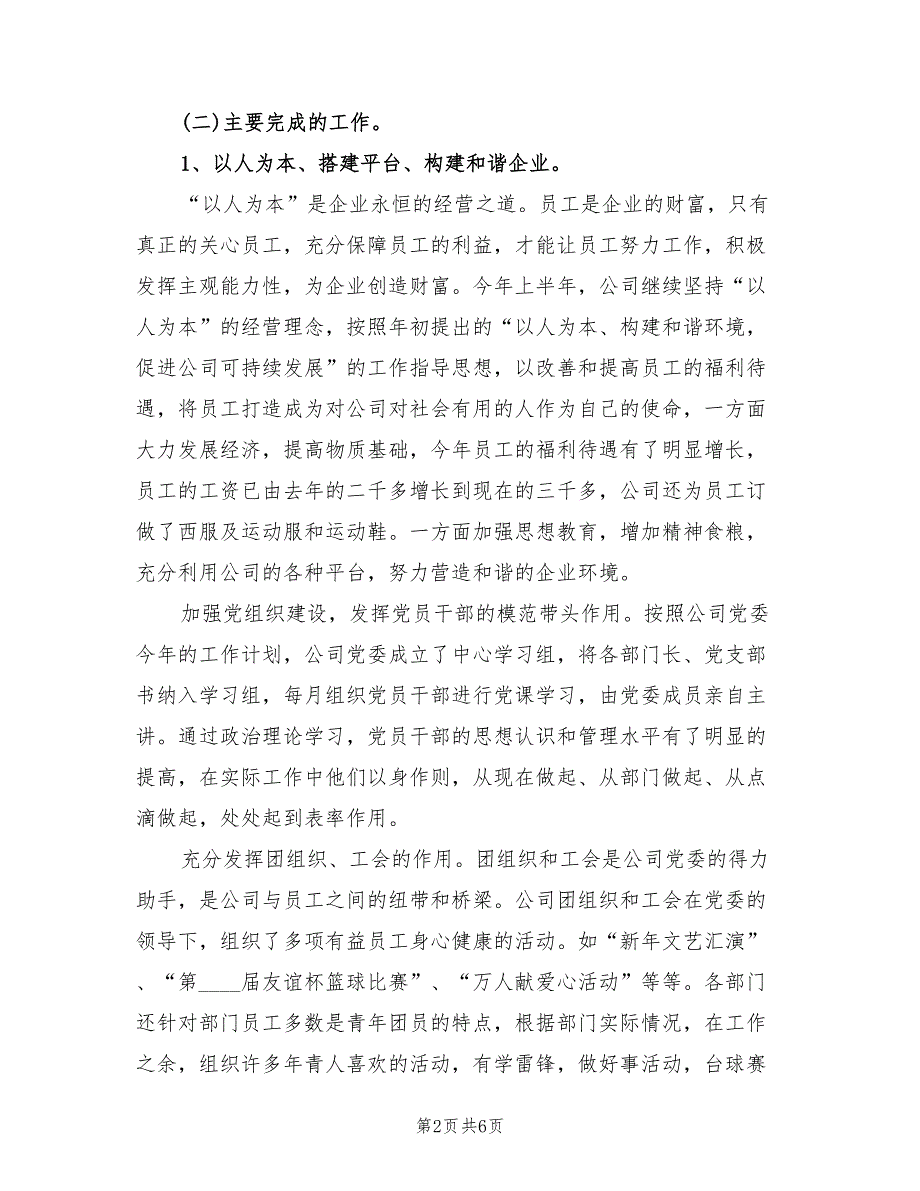 (二)主要完成的工作。
1、以人为本、搭建平台、构建和谐企业。
“以人为本”是企业永恒的经营之道。员工是企业的财富，只有
真正的关心员工，充分保障员工的利益，才能让员工努力工作，积极
发挥主观能力性，为企业创造财富。今年上半年，公司继续坚持“以
人为本”的经营理念，按照年初提出的“以人为本、构建和谐环境，
促进公司可持续发展”的工作指导思想，以改善和提高员工的福利待
遇，将员工打造成为对公司对社会有用的人作为自己的使命，一方面
大力发展经济，提高物质基础，今年员工的福利待遇有了明显增长，
员工的工资已由去年的二千多增长到现在的三千多，公司还为员工订
做了西服及运动服和运动鞋。一方面加强思想教育，增加精神食粮，
充分利用公司的各种平台，努力营造和谐的企业环境。
加强党组织建设，发挥党员干部的模范带头作用。按照公司党委
今年的工作计划，公司党委成立了中心学习组，将各部门长、党支部
书纳入学习组，每月组织党员干部进行党课学习，由党委成员亲自主
讲。通过政治理论学习，党员干部的思想认识和管理水平有了明显的
提高，在实际工作中他们以身作则，从现在做起、从部门做起、从点
滴做起，处处起到表率作用。
充分发挥团组织、工会的作用。团组织和工会是公司党委的得力
助手，是公司与员工之间的纽带和桥梁。公司团组织和工会在党委的
领导下，组织了多项有益员工身心健康的活动。如“新年文艺汇演”
、“第____届友谊杯篮球比赛”、“万人献爱心活动”等等。各部门
还针对部门员工多数是青年团员的特点，根据部门实际情况，在工作
之余，组织许多年青人喜欢的活动，有学雷锋，做好事活动，台球赛
第2页共6页